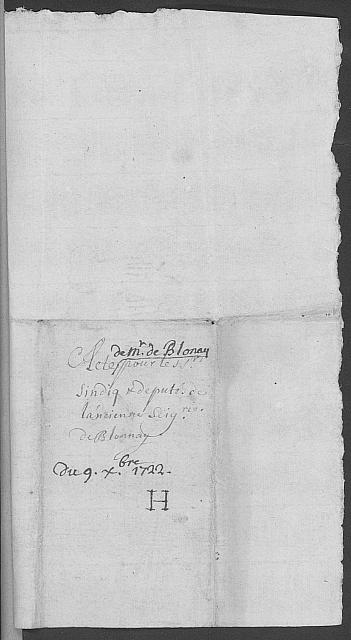 de mr. de Blonay
Acte pour le Srs
Sindiq & deputés de
lancienne Seigrie.
de Blonnay
du 9. xbre 1722.
H